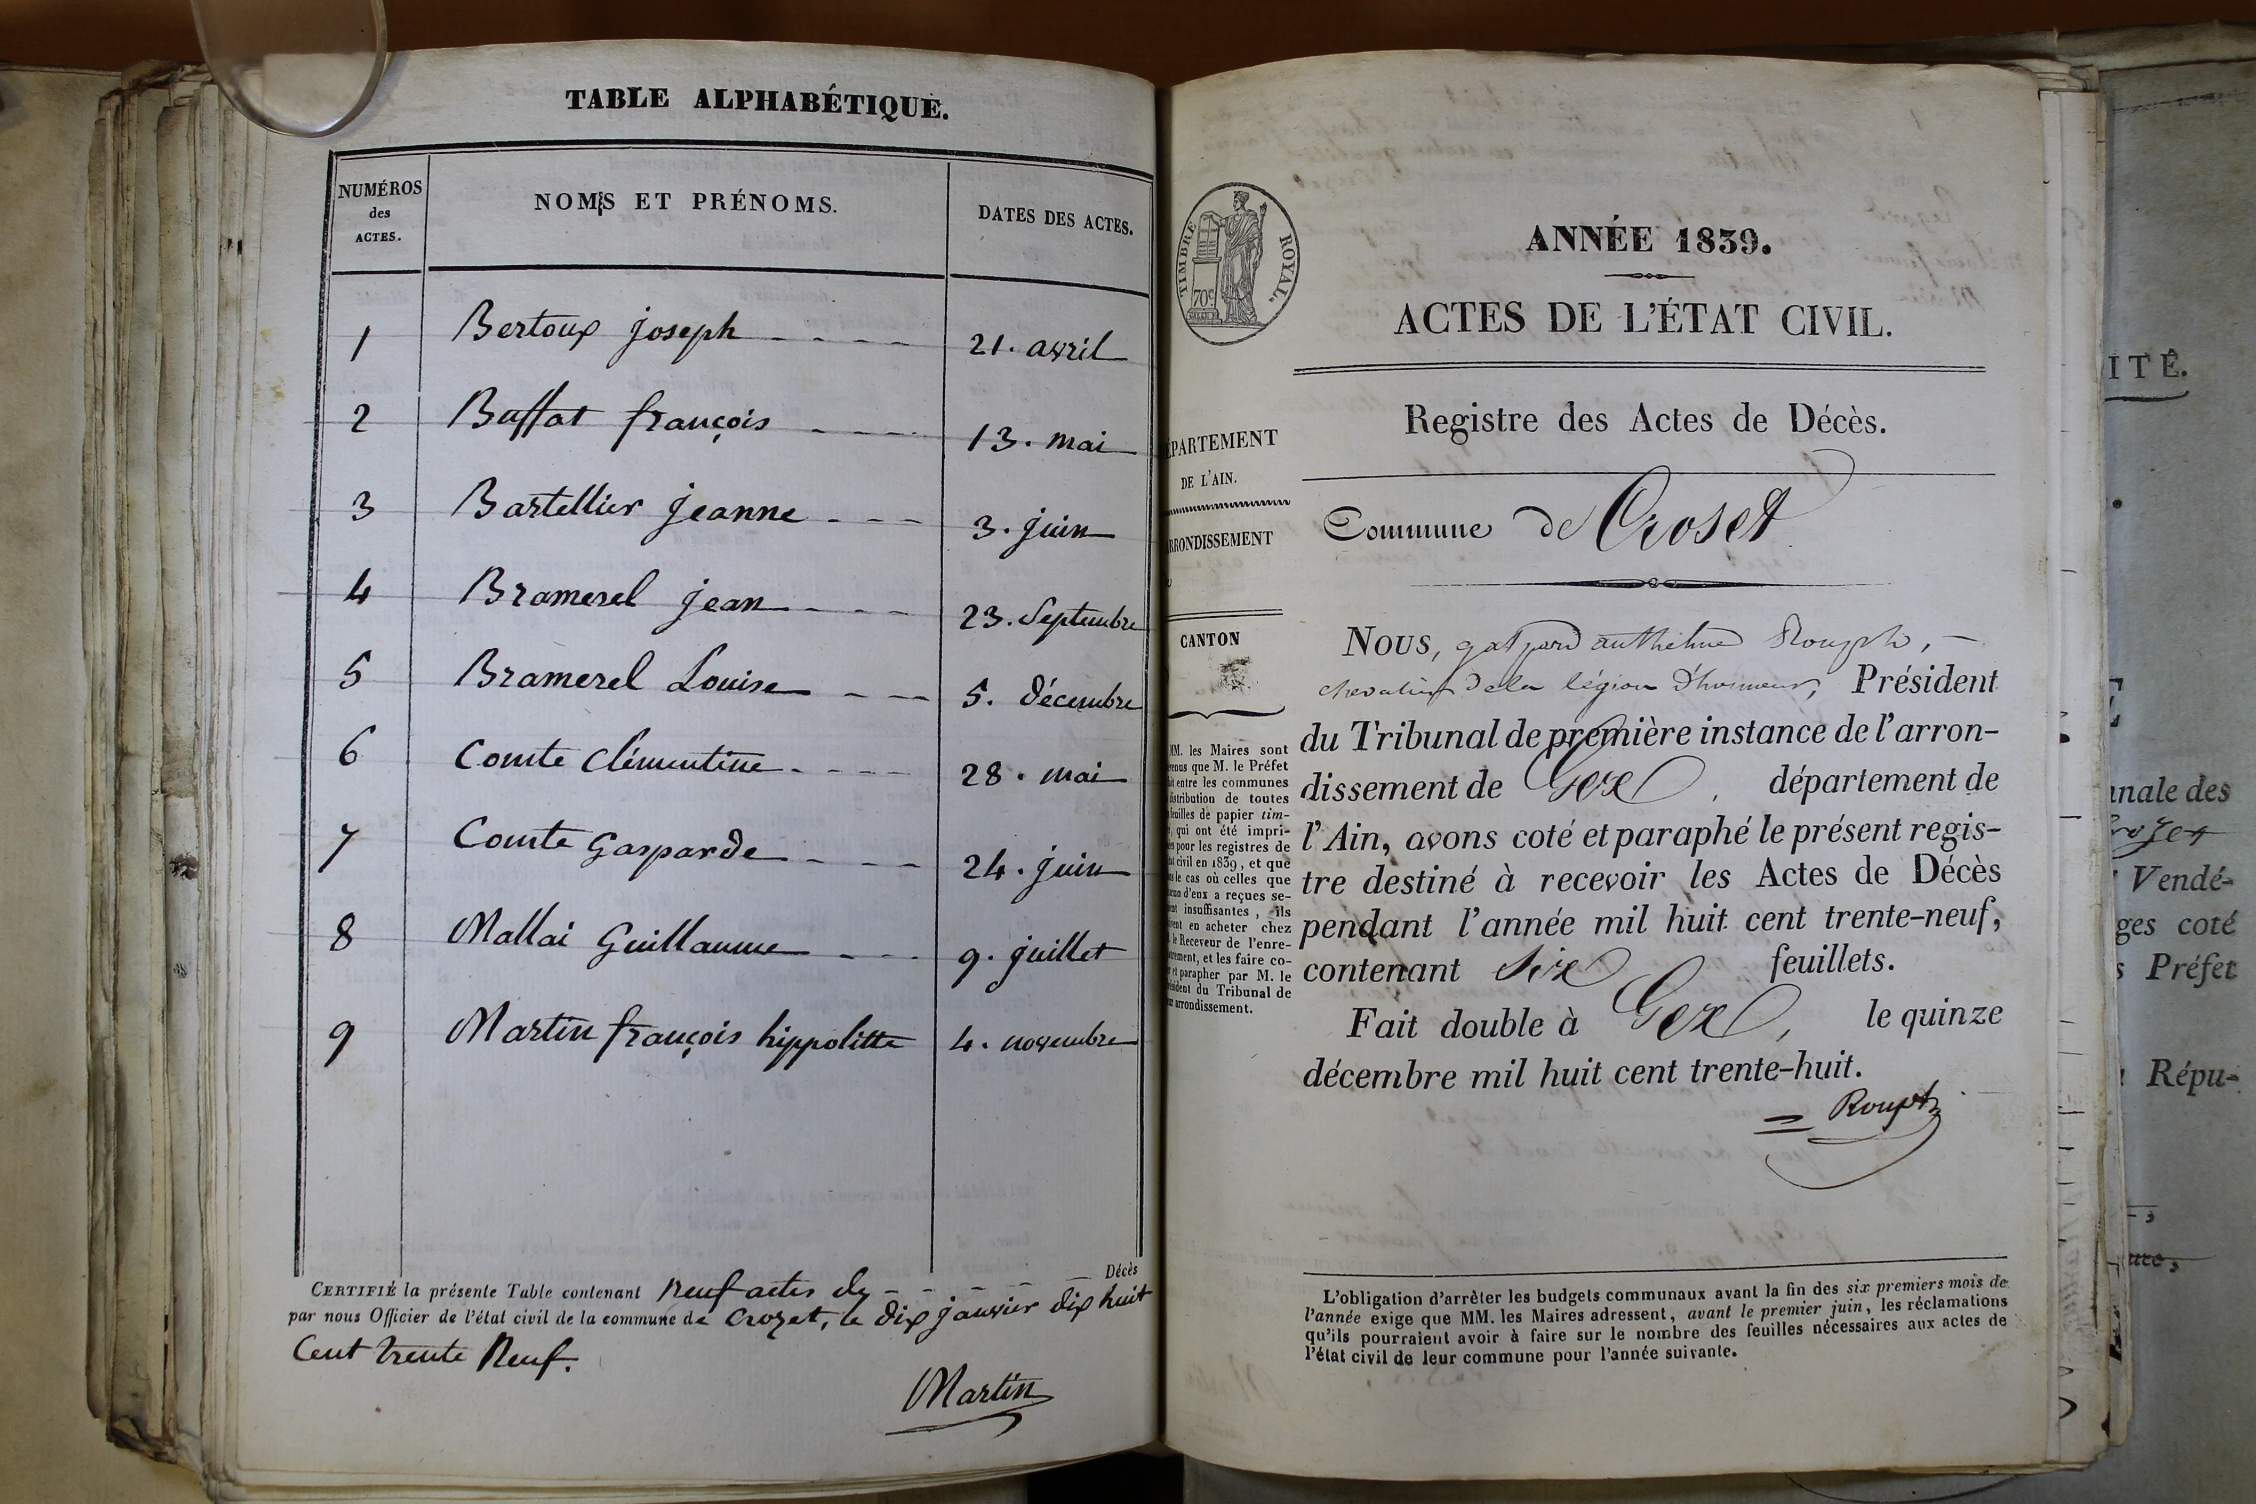 TABLE ALPHABÉTIQUE.
NUMÉROS des ACTES. NOMS ET PRÉNOMS. DATES DES ACTES.
1 Bertoux joseph 21. avril
2 Buffat françois 13. mai
3 Bartellier jeanne 3. juin
4 Bramerel jean 23. Septembre
5 Bramerel Louise 5. décembre
6 Comte Clémentine 28. mai
7 Comte Gasparde 24. juin
8 Mallai Guillaume 9. juillet
9 Martin françois hippolitte 4. novembre
CERTIFIÉ la présente Table contenant Neuf actes de Décès
par nous Officier de l'état civil de la commune de Crozet, le dix janvier dix huit
Cent trente Neuf.
Martin
TIMBRE ROYAL.
70c
ÉPARTEMENT
DE L'AIN.
RRONDISSEMENT
CANTON
MM. les Maires sont
venus que M. le Préfet
it entre les communes
distribution de toutes
feuilles de papier tim-
, qui ont été impri-
es pour les registres de
tat civil en 1839, et que
s le cas où celles que
cun d'eux a reçues se-
ent insuffisantes, ils
vent en acheter chez
le Receveur de l'enre-
trement, et les faire co-
r et parapher par M. le
résident du Tribunal de
ur arrondissement.
ANNÉE 1839.
ACTES DE L'ÉTAT CIVIL.
Registre des Actes de Décès.
Commune de Croset
NOUS, gaspard anthelme Rouph,
chevalier de la légion d'honneur, Président
du Tribunal de première instance de l'arron-
dissement de Gex, département de
l'Ain, avons coté et paraphé le présent regis-
tre destiné à recevoir les Actes de Décès
pendant l'année mil huit cent trente-neuf,
contenant Six feuillets.
Fait double à Gex, le quinze
décembre mil huit cent trente-huit.
Rouph
L'obligation d'arrêter les budgets communaux avant la fin des six premiers mois de
l'année exige que MM. les Maires adressent, avant le premier juin, les réclamations
qu'ils pourraient avoir à faire sur le nombre des feuilles nécessaires aux actes de
l'état civil de leur commune pour l'année suivante.
ITÉ.
nnale des
rozet
Vendé-
ges coté
s Préfet
Répu-